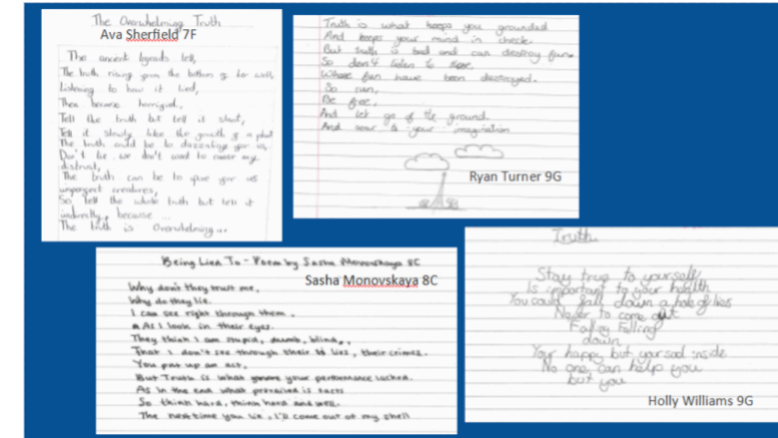 The Overwhelming Truth
Ava Sherfield 7F
The ancient legends tell,
The truth rising from the bottom of her well,
Listening to how it lied,
Then became horrified,
Tell the truth but tell it slant,
Tell it slowly like the growth of a plant
The truth could be to dazzling for us
Don't lie we don't want to cause any
distrust,
The truth can be to for us
creatures,
So tell the whole truth but tell it
indirectly, because ...
The truth is Overwhelming...
Truth is what keeps you grounded
And keeps your mind in check.
But truth is bad and can destroy fun.
So don't listen to
Whose fun have been destroyed.
So run,
Be free,
And let go of the ground
And soar to your imagination
Ryan Turner 9G
Being Lied To - Poem by Sasha Monovskaya 8C
Sasha Monovskaya 8C
Why don't they trust me,
Why do they lie.
I can see right through them,
As I look in their eyes.
They think I am stupid, dumb, blind,
That I don't see through their lies, their crimes.
You put up an act,
But Truth is what your performance lacked.
As in the end what prevailed is facts
So think hard, think hard and well.
The next time you lie, I'll come out of my shell
Truth
Stay true to yourself
Is important to your health
You could fall down a hole of lies
Never to come out
Falling Falling
down
Your happy but your sad inside
No one can help you
but you
Holly Williams 9G